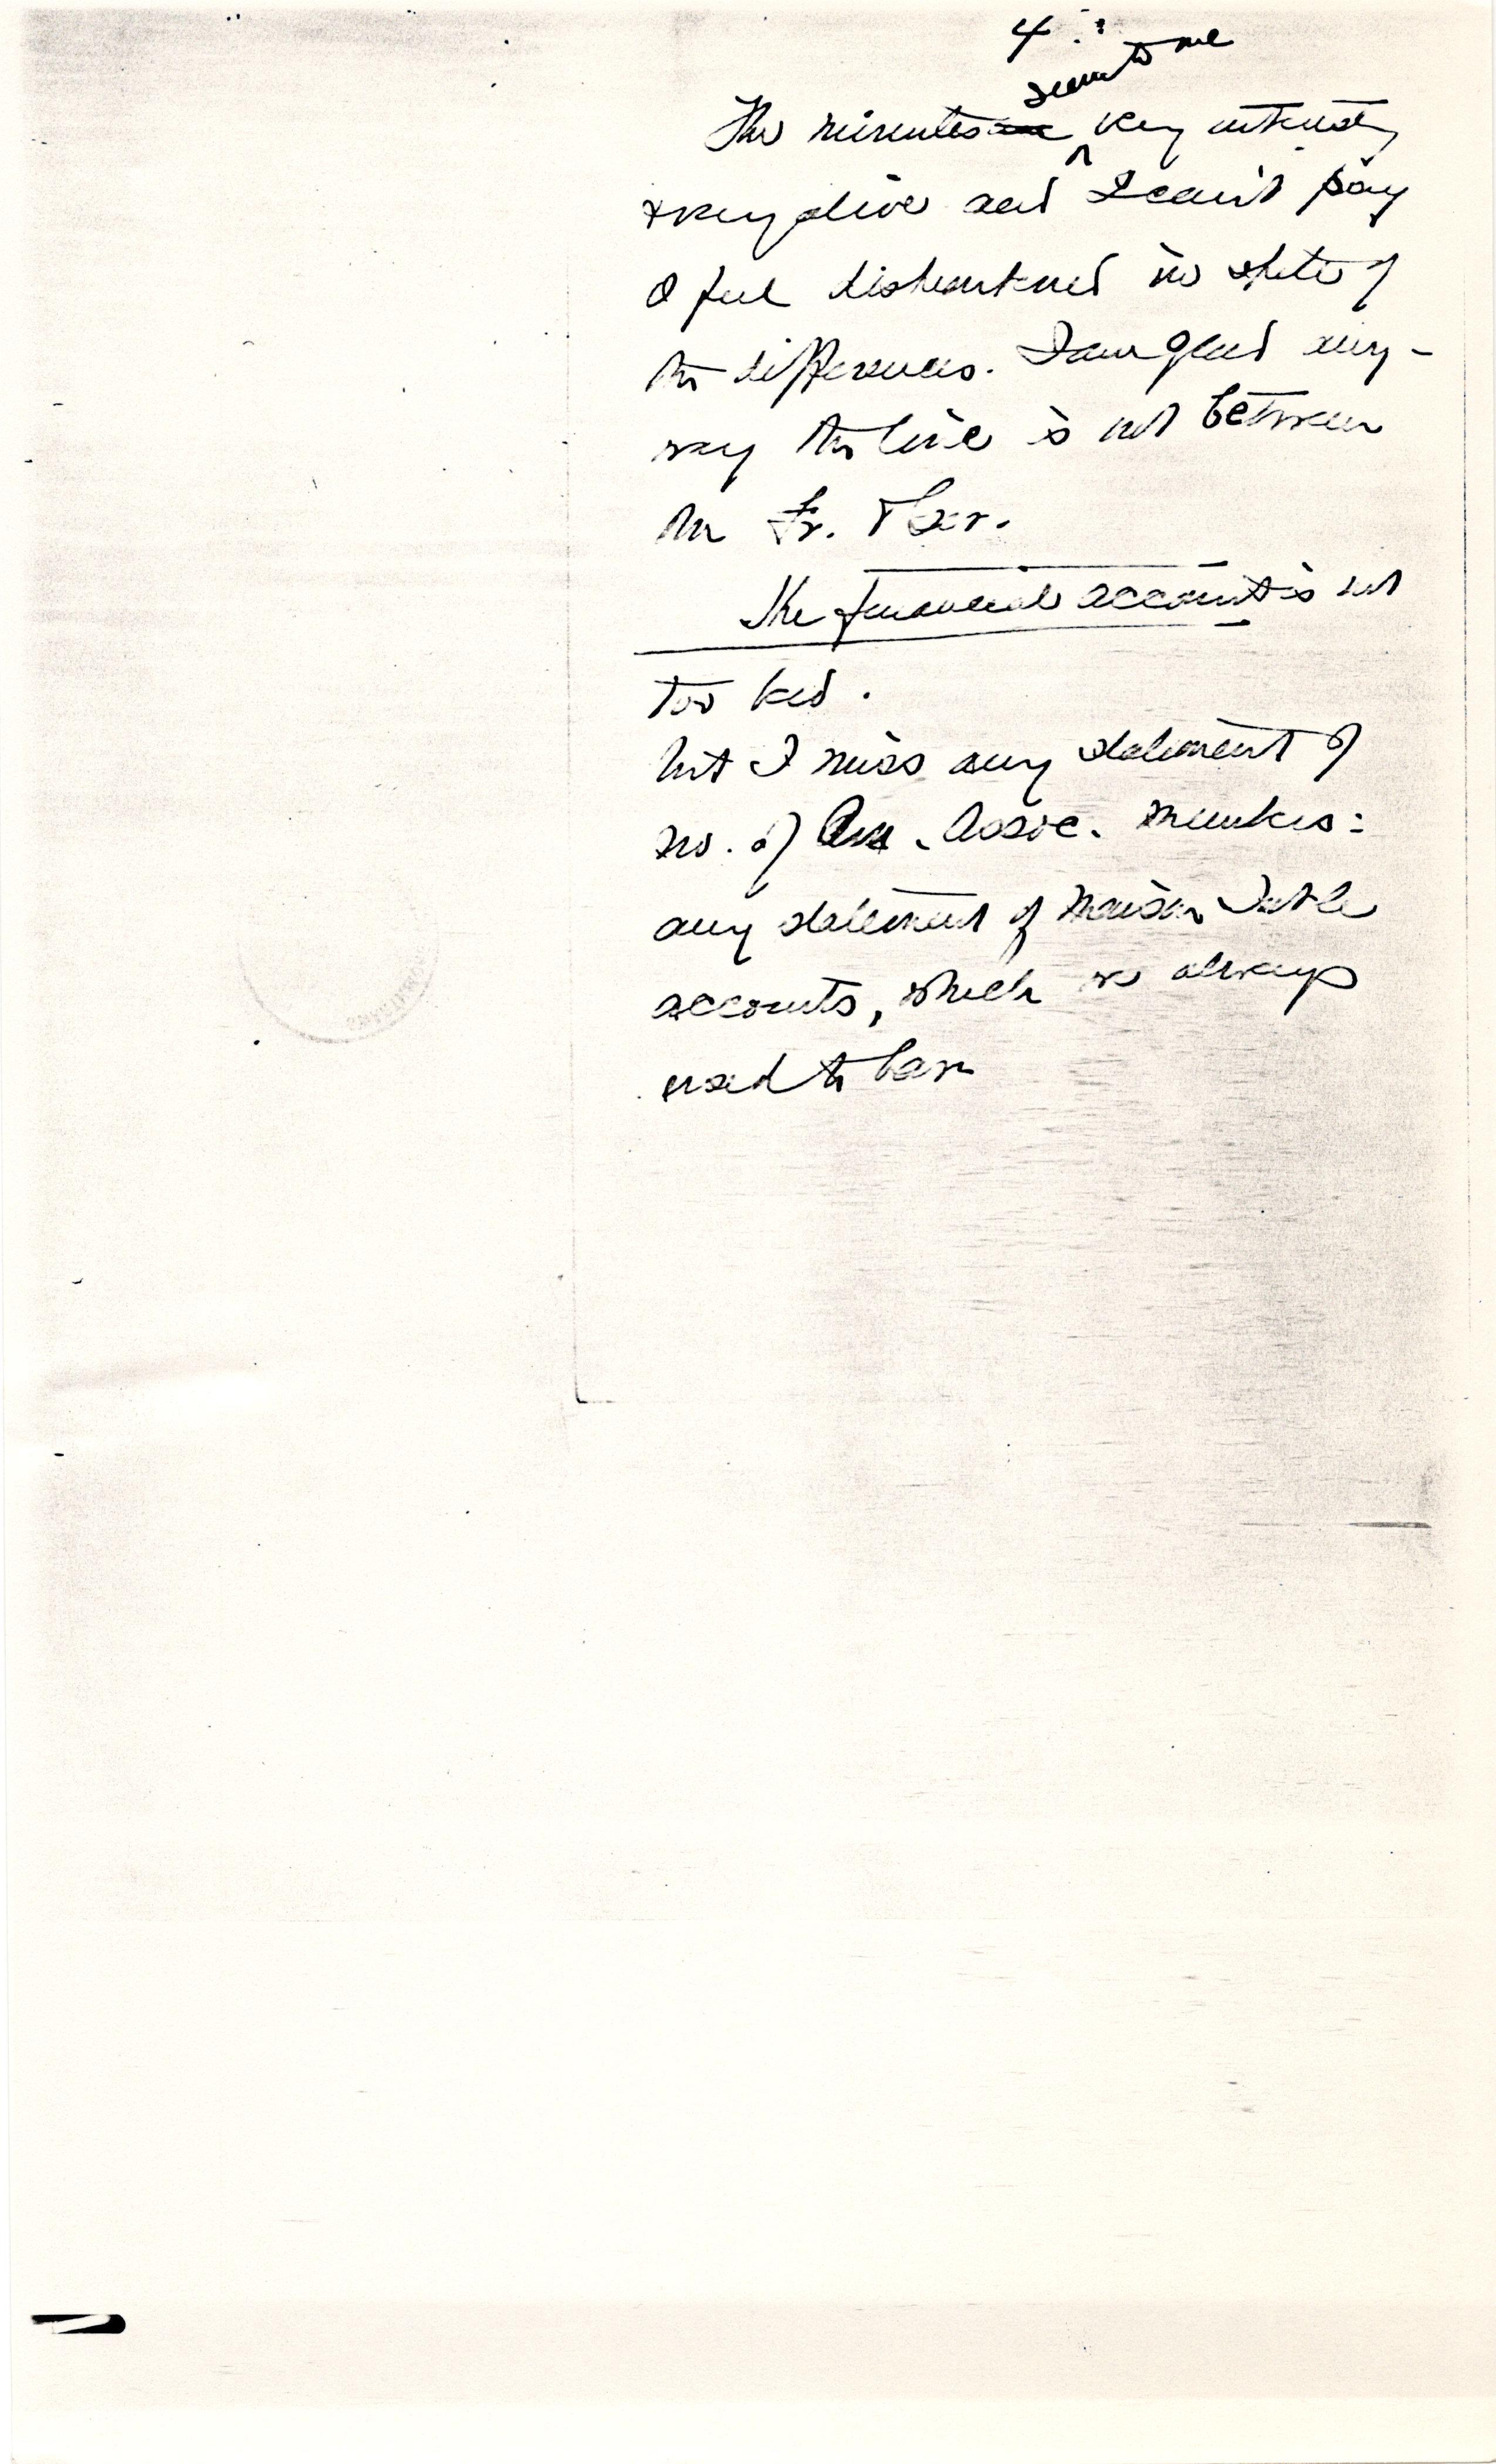 4.
seem to me
The minutes are very interesting
& very alive and I can't say
I feel disheartened in spite of
the differences. I am glad any-
way the line is not between
the Fr. & Ger.
The financial account is not
too bad.
but I miss any statement of
no. of Am. Assoc. members:
any statement of Maison Int le
accounts, which we always
used to have